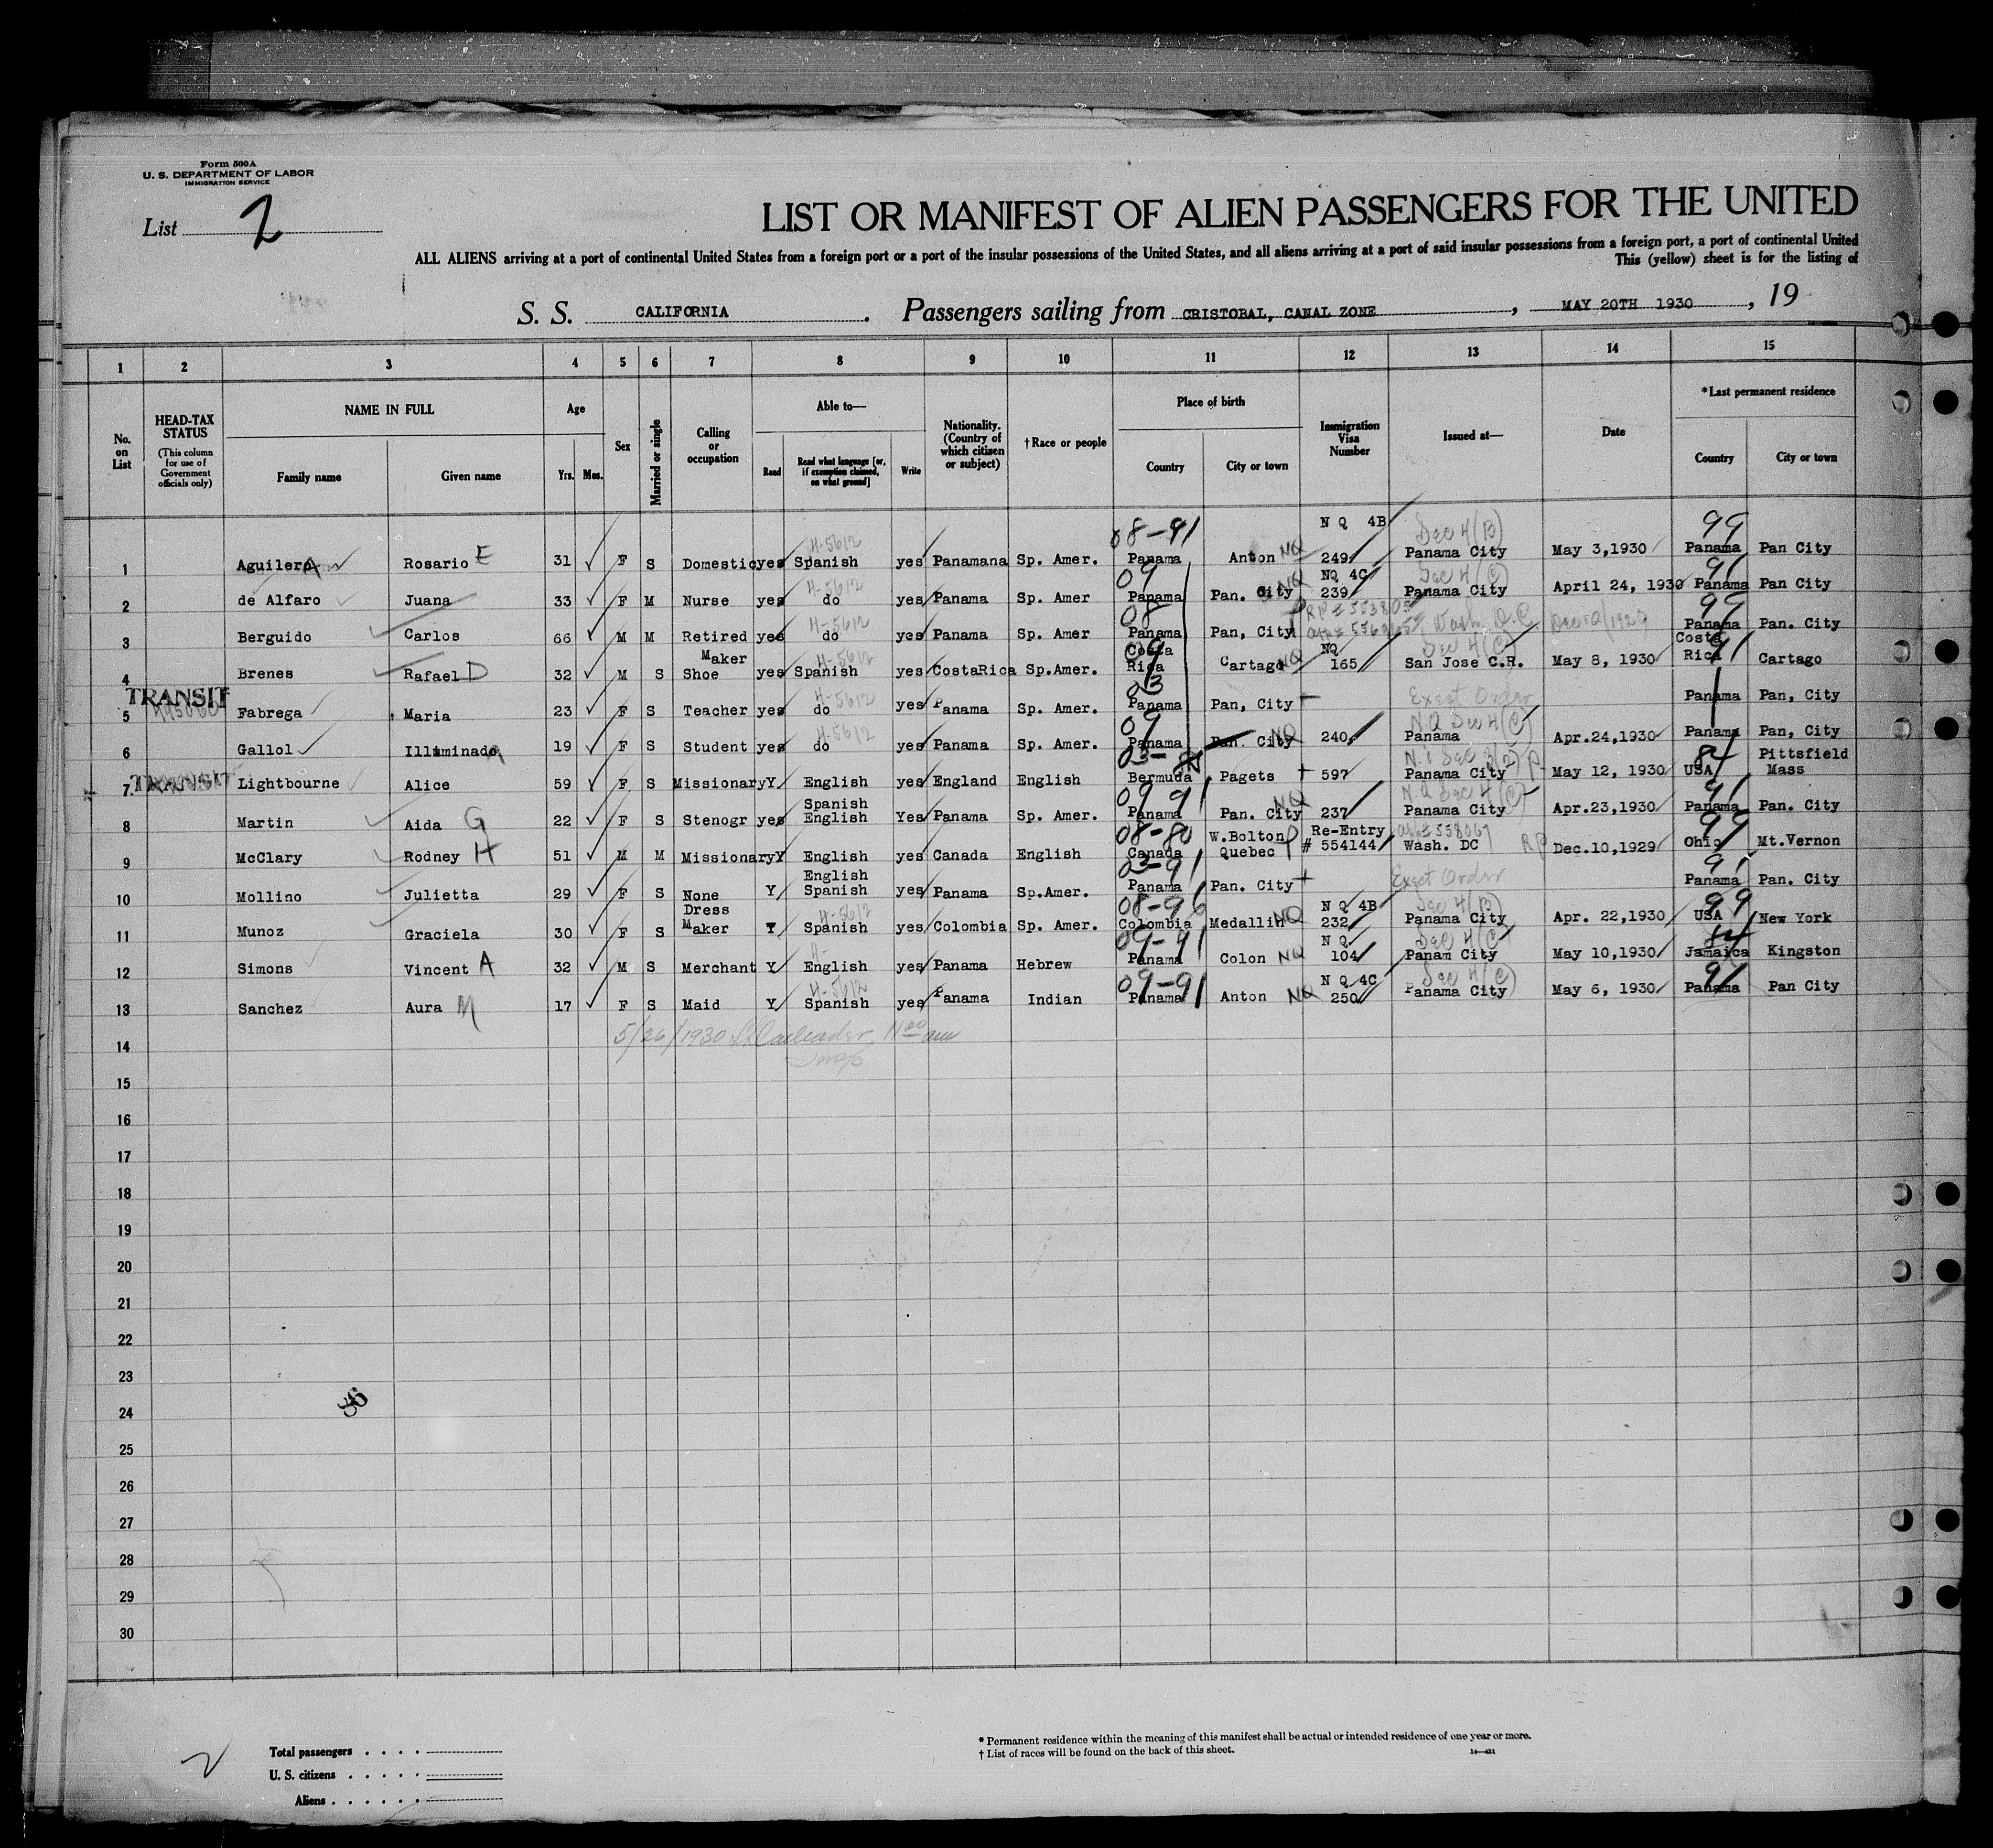 Form 500A
U. S. DEPARTMENT OF LABOR
IMMIGRATION SERVICE
List 2
LIST OR MANIFEST OF ALIEN PASSENGERS FOR THE UNITED
ALL ALIENS arriving at a port of continental United States from a foreign port or a port of the insular possessions of the United States, and all aliens arriving at a port of said insular possessions from a foreign port, a port of continental United
This (yellow) sheet is for the listing of
S. S. CALIFORNIA . Passengers sailing from CRISTOBAL, CANAL ZONE , MAY 20TH 1930 , 19
1 2 3 4 5 6 7 8 9 10 11 12 13 14 15
No. on List
HEAD-TAX STATUS
(This column for use of Government officials only)
NAME IN FULL
Family name Given name
Age
Yrs. Mos.
Sex
Married or single
Calling or occupation
Able to—
Read
Read what language [or, if exemption claimed, on what ground]
Write
Nationality. (Country of which citizen or subject)
†Race or people
Place of birth
Country City or town
Immigration Visa Number
Issued at—
Date
*Last permanent residence
Country City or town
08-91 N Q 4B Sec 4(B) 99
1 Aguilera Rosario E 31 F S Domestic yes Spanish yes Panamana Sp. Amer. Panama Anton NQ 249 Panama City May 3,1930 Panama Pan City
09 NQ 4C Sec 4(C) 91
2 de Alfaro Juana 33 F M Nurse yes do yes Panama Sp. Amer Panama Pan. City NQ 239 Panama City April 24, 1930 Panama Pan City
08 99
3 Berguido Carlos 66 M M Retired yes do yes Panama Sp. Amer Panama Pan, City Wash. D.C Panama Pan. City
Maker Costa NQ Sec 4(C) Costa
4 Brenes Rafael D 32 M S Shoe yes Spanish yes CostaRica Sp.Amer. Rica Cartago NQ 165 San Jose C.R. May 8, 1930 Rica Cartago
TRANSIT 03
5 Fabrega Maria 23 F S Teacher yes do yes Panama Sp. Amer. Panama Pan, City Exect Order Panama Pan, City
09 N.Q Sec 4(C)
6 Gallol Illuminada 19 F S Student yes do yes Panama Sp. Amer. Panama Pan. City NQ 240 Panama Apr.24,1930 Panama Pan, City
Pittsfield
7 TRANSIT Lightbourne Alice 59 F S Missionary Y English yes England English Bermuda Pagets 597 Panama City May 12, 1930 USA Mass
Spanish 09 91 N.Q Sec 4(C) 91
8 Martin Aida G 22 F S Stenogr yes English Yes Panama Sp. Amer. Panama Pan. City NQ 237 Panama City Apr.23,1930 Panama Pan. City
08-80 W.Bolton Re-Entry
9 McClary Rodney H 51 M M Missionary Y English yes Canada English Canada Quebec # 554144 Wash. DC RP Dec.10,1929 Ohio Mt.Vernon
English 03-91 91
10 Mollino Julietta 29 F S None Y Spanish yes Panama Sp.Amer. Panama Pan. City Exect Order Panama Pan. City
Dress H-5612 08-96 N Q 4B Sec 4(B) 99
11 Munoz Graciela 30 F S Maker Y Spanish yes Colombia Sp. Amer. Colombia Medallin NQ 232 Panama City Apr. 22,1930 USA New York
09-91 N Q Sec 4(C)
12 Simons Vincent A 32 M S Merchant Y English yes Panama Hebrew Panama Colon NQ 104 Panam City May 10,1930 Jamaica Kingston
H-5612 09-91 N Q 4C Sec 4(C) 91
13 Sanchez Aura M 17 F S Maid Y Spanish yes Panama Indian Panama Anton NQ 250 Panama City May 6, 1930 Panama Pan City
5/26/1930
14
15
16
17
18
19
20
21
22
23
24
25
26
27
28
29
30
2
Total passengers
U. S. citizens
Aliens
* Permanent residence within the meaning of this manifest shall be actual or intended residence of one year or more.
† List of races will be found on the back of this sheet.